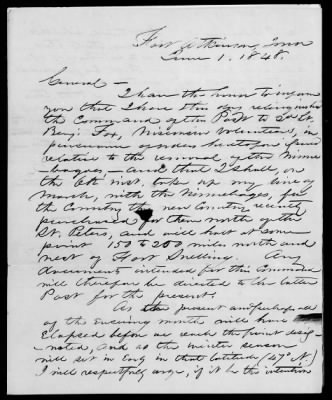 Fort Atkinson, Iowa
June 1. 1848.
General—
I have the honor to inform
you that I have this day relinquished
the Command of the Post to 2d Lt.
Benj. Fox, Wisconsin Volunteers, in
pursuance of orders heretofore given
relative to the removal of the Winne-
bagoes,—and that I shall, on
the 6th inst. take up my line of
March, with the Winnebagoes, for
the Country the new Country recently
purchased for them north of the
St. Peters, and will halt at some
point 150 to 200 miles north and
west of Fort Snelling. Any
documents intended for this command
will therefore be directed to the latter
Post for the present.
As the present and perhaps
of the ensuing month will have
elapsed before we reach the point desig-
nated, and as the winter season
will set in early in that latitude (47° N.)
I will respectfully urge, if it be the intention